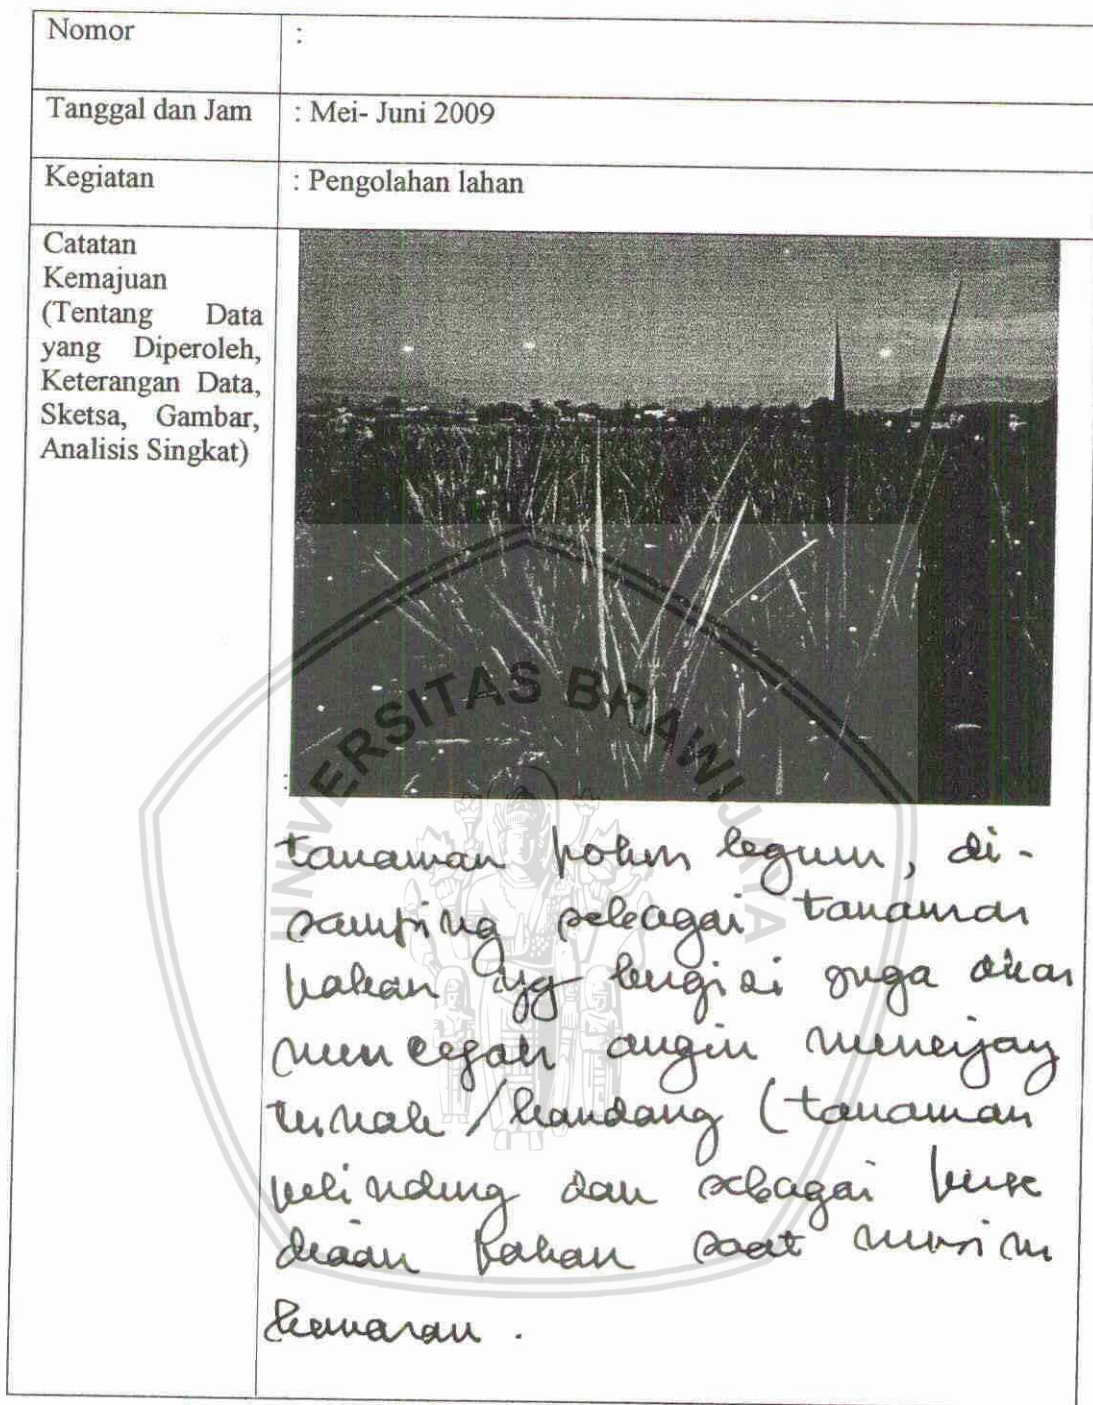 Nomor :
Tanggal dan Jam : Mei- Juni 2009
Kegiatan : Pengolahan lahan
Catatan
Kemajuan
(Tentang Data
yang Diperoleh,
Keterangan Data,
Sketsa, Gambar,
Analisis Singkat)
:
UNIVERSITAS BRAWIJAYA
tanaman pohon legum, di-
samping sebagai tanaman
pakan yg bergizi juga akan
mencegah angin menerjang
ternak / kandang (tanaman
pelindung dan sebagai perse
diaan pakan saat musim
kemarau.